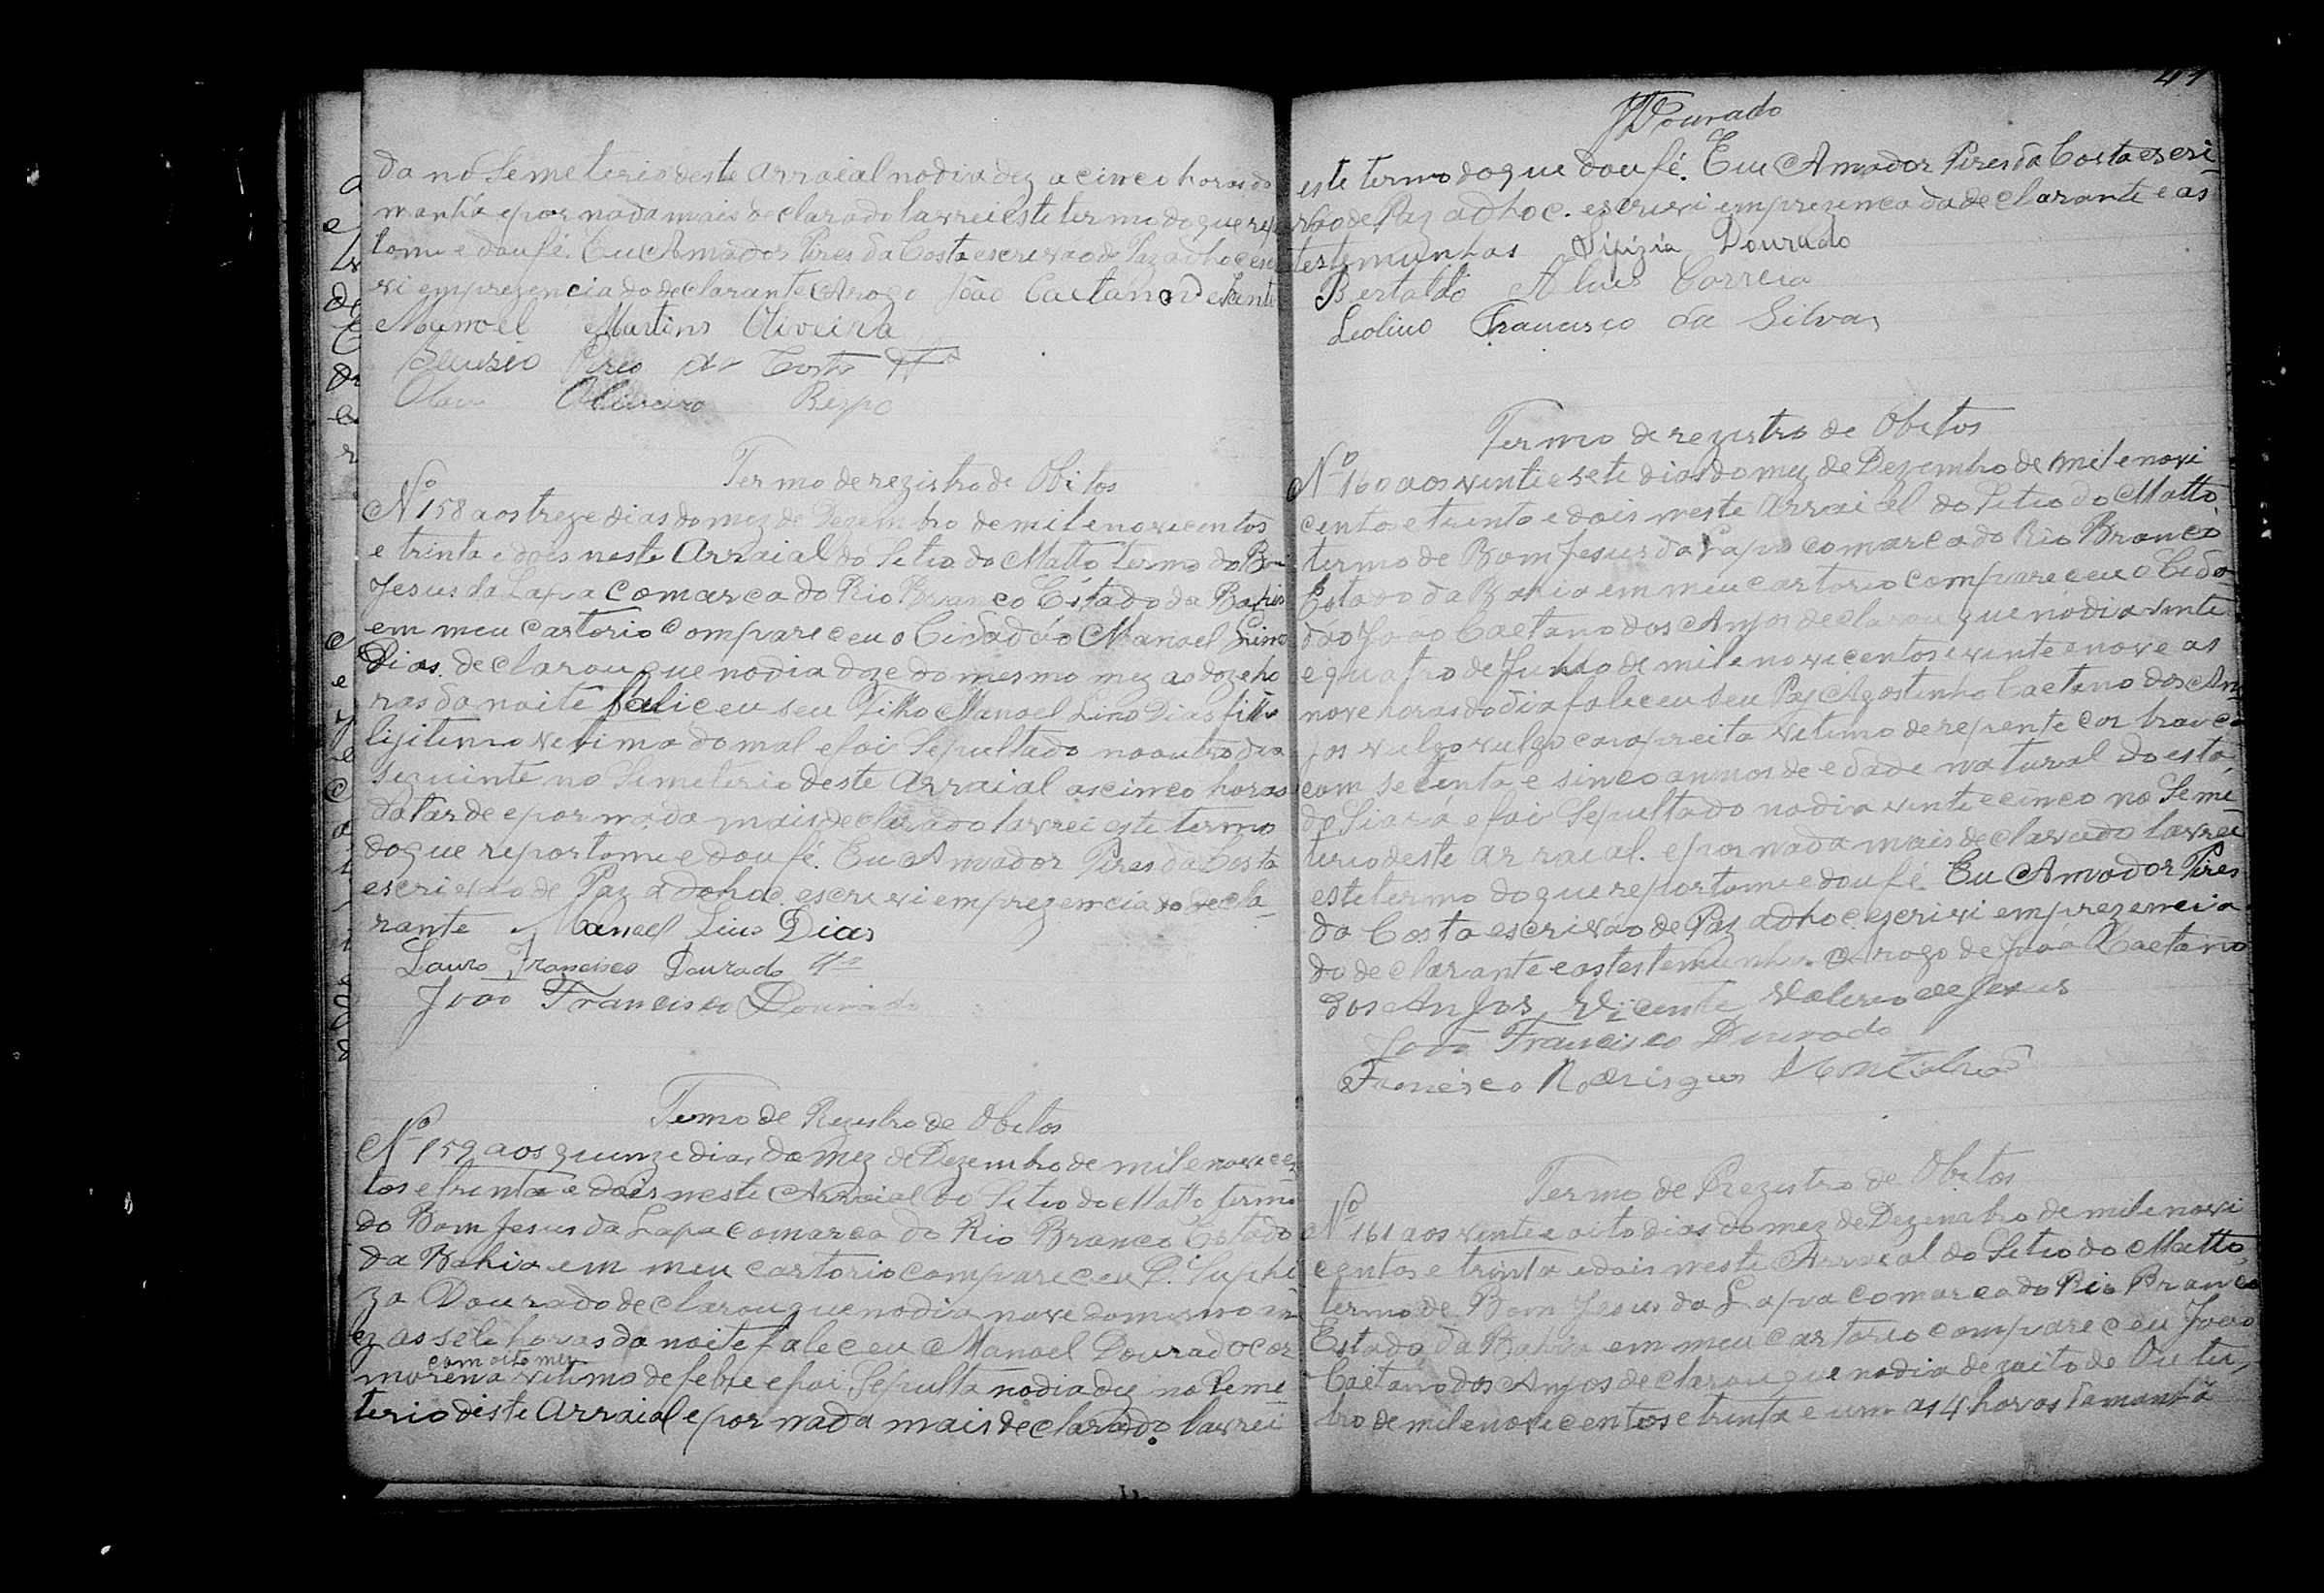 da no Semeterio deste arraial no dia dez a cinco horas da
manhã e por nada mais declarado lavrei este termo do que repor
tome e dou fé. Eu Amador Pires da Costa escrivão de Paz adhoc escre
vi em prezencia do declarante Arogo João Caetano de Santo
Manoel Martins Oliveira
Pires da Costa
Oliveira Bispo
Termo de rezistro de Obitos
Nº 158 aos treze dias do mez de Dezembro de mil enovicentos
e trinta e dois neste Arraial do Sitio do Matto termo do Bom
Jesus da Lapa comarca do Rio Branco Estado da Bahia
em meu cartorio compareceu o Cidadão Manoel Lino
Dias. declarou que no dia doze do mesmo mez as doze ho
ras da noite faliceu seu Filho Manoel Lino Dias filho
lijitimo vetimo do mal e foi Sepultado no outro dia
seguinte no Semeterio deste arraial as cinco horas
da tarde e por nada mais declarado lavrei este termo
do que reportome e dou fé. Eu Amador Pires da Costa
escrivão de Paz adohoc. escrevi em prezencia do decla
rante Manoel Lino Dias
Lauro Francisco Dourado
João Francisco Dourado
Termo de Rezistro de Obitos
Nº 159 aos quinze dias do mez de Dezembro de mil enovecen
tos e trinta e dois neste Arraial do Sitio do Matto termo
do Bom Jesus da Lapa comarca do Rio Branco Estado
da Bahia em meu cartorio compareceu D. Suphi
za Dourado declarou que no dia nove do mesmo m
ez as sete horas da noite faleceu Manoel Dourado cor
com oito mez
morena vetimo de febre e foi Sepulta no dia dez no Seme
terio deste Arraial e por nada mais declarado lavrei
47
JDourado
este termo do que dou fé. Eu Amador Pires da Costa escri
vão de Paz adhoc. escrevi em prezenca da declarante e as
testemunhas Sifizia Dourado
Bertaldo Alves Correia
Leolino Francisco da Silva
Termo de rezistro de Obitos
Nº 160 aos vinte e sete dias do mez de Dezembro de mil enovi
centos e trinta e dois neste Arraiel do Sitio do Matto
termo de Bom Jesus da Lapa comarca do Rio Branco
Estado da Bahia em meu cartorio compareceu o Cida
dão João Caetano dos Anjos declarou que no dia vinte
e quatro de Junho de mil e novicentos e vinte e nove as
nove horas do dia faleceu seu Pay Agostinho Caetano dos An
jos vulgo vulgo vetimo de repente cor branca
com secenta e sinco annos de edade natural do esta
do Siará e foi Sepultado no dia vinte e cinco no Seme
terio deste arraial. e por nada mais declarado lavrei
este termo do que reportome e dou fé. Eu Amador Pires
da Costa escrivão de Paz adhoc. escrivi em prezencia
do declarante e as testemunha. Arogo de João Caetano
dos Anjos Vicente Valerio de Jesus
João Francisco Dourado
Francisco Rodrigues
Termo de Rezistro de Obitos
Nº 161 aos vinte e oito dias do mez de Dezembro de mil enovi
centos e trinta e dois neste Arraial do Sitio do Matto,
termo de Bom Jesus da Lapa comarca do Rio Branco
Estado da Bahia em meu cartorio compareceu João
Caetano dos Anjos declarou que no dia dezoito de Outu,
bro de mil enovecentos e trinta e um as 4 horas da manhã